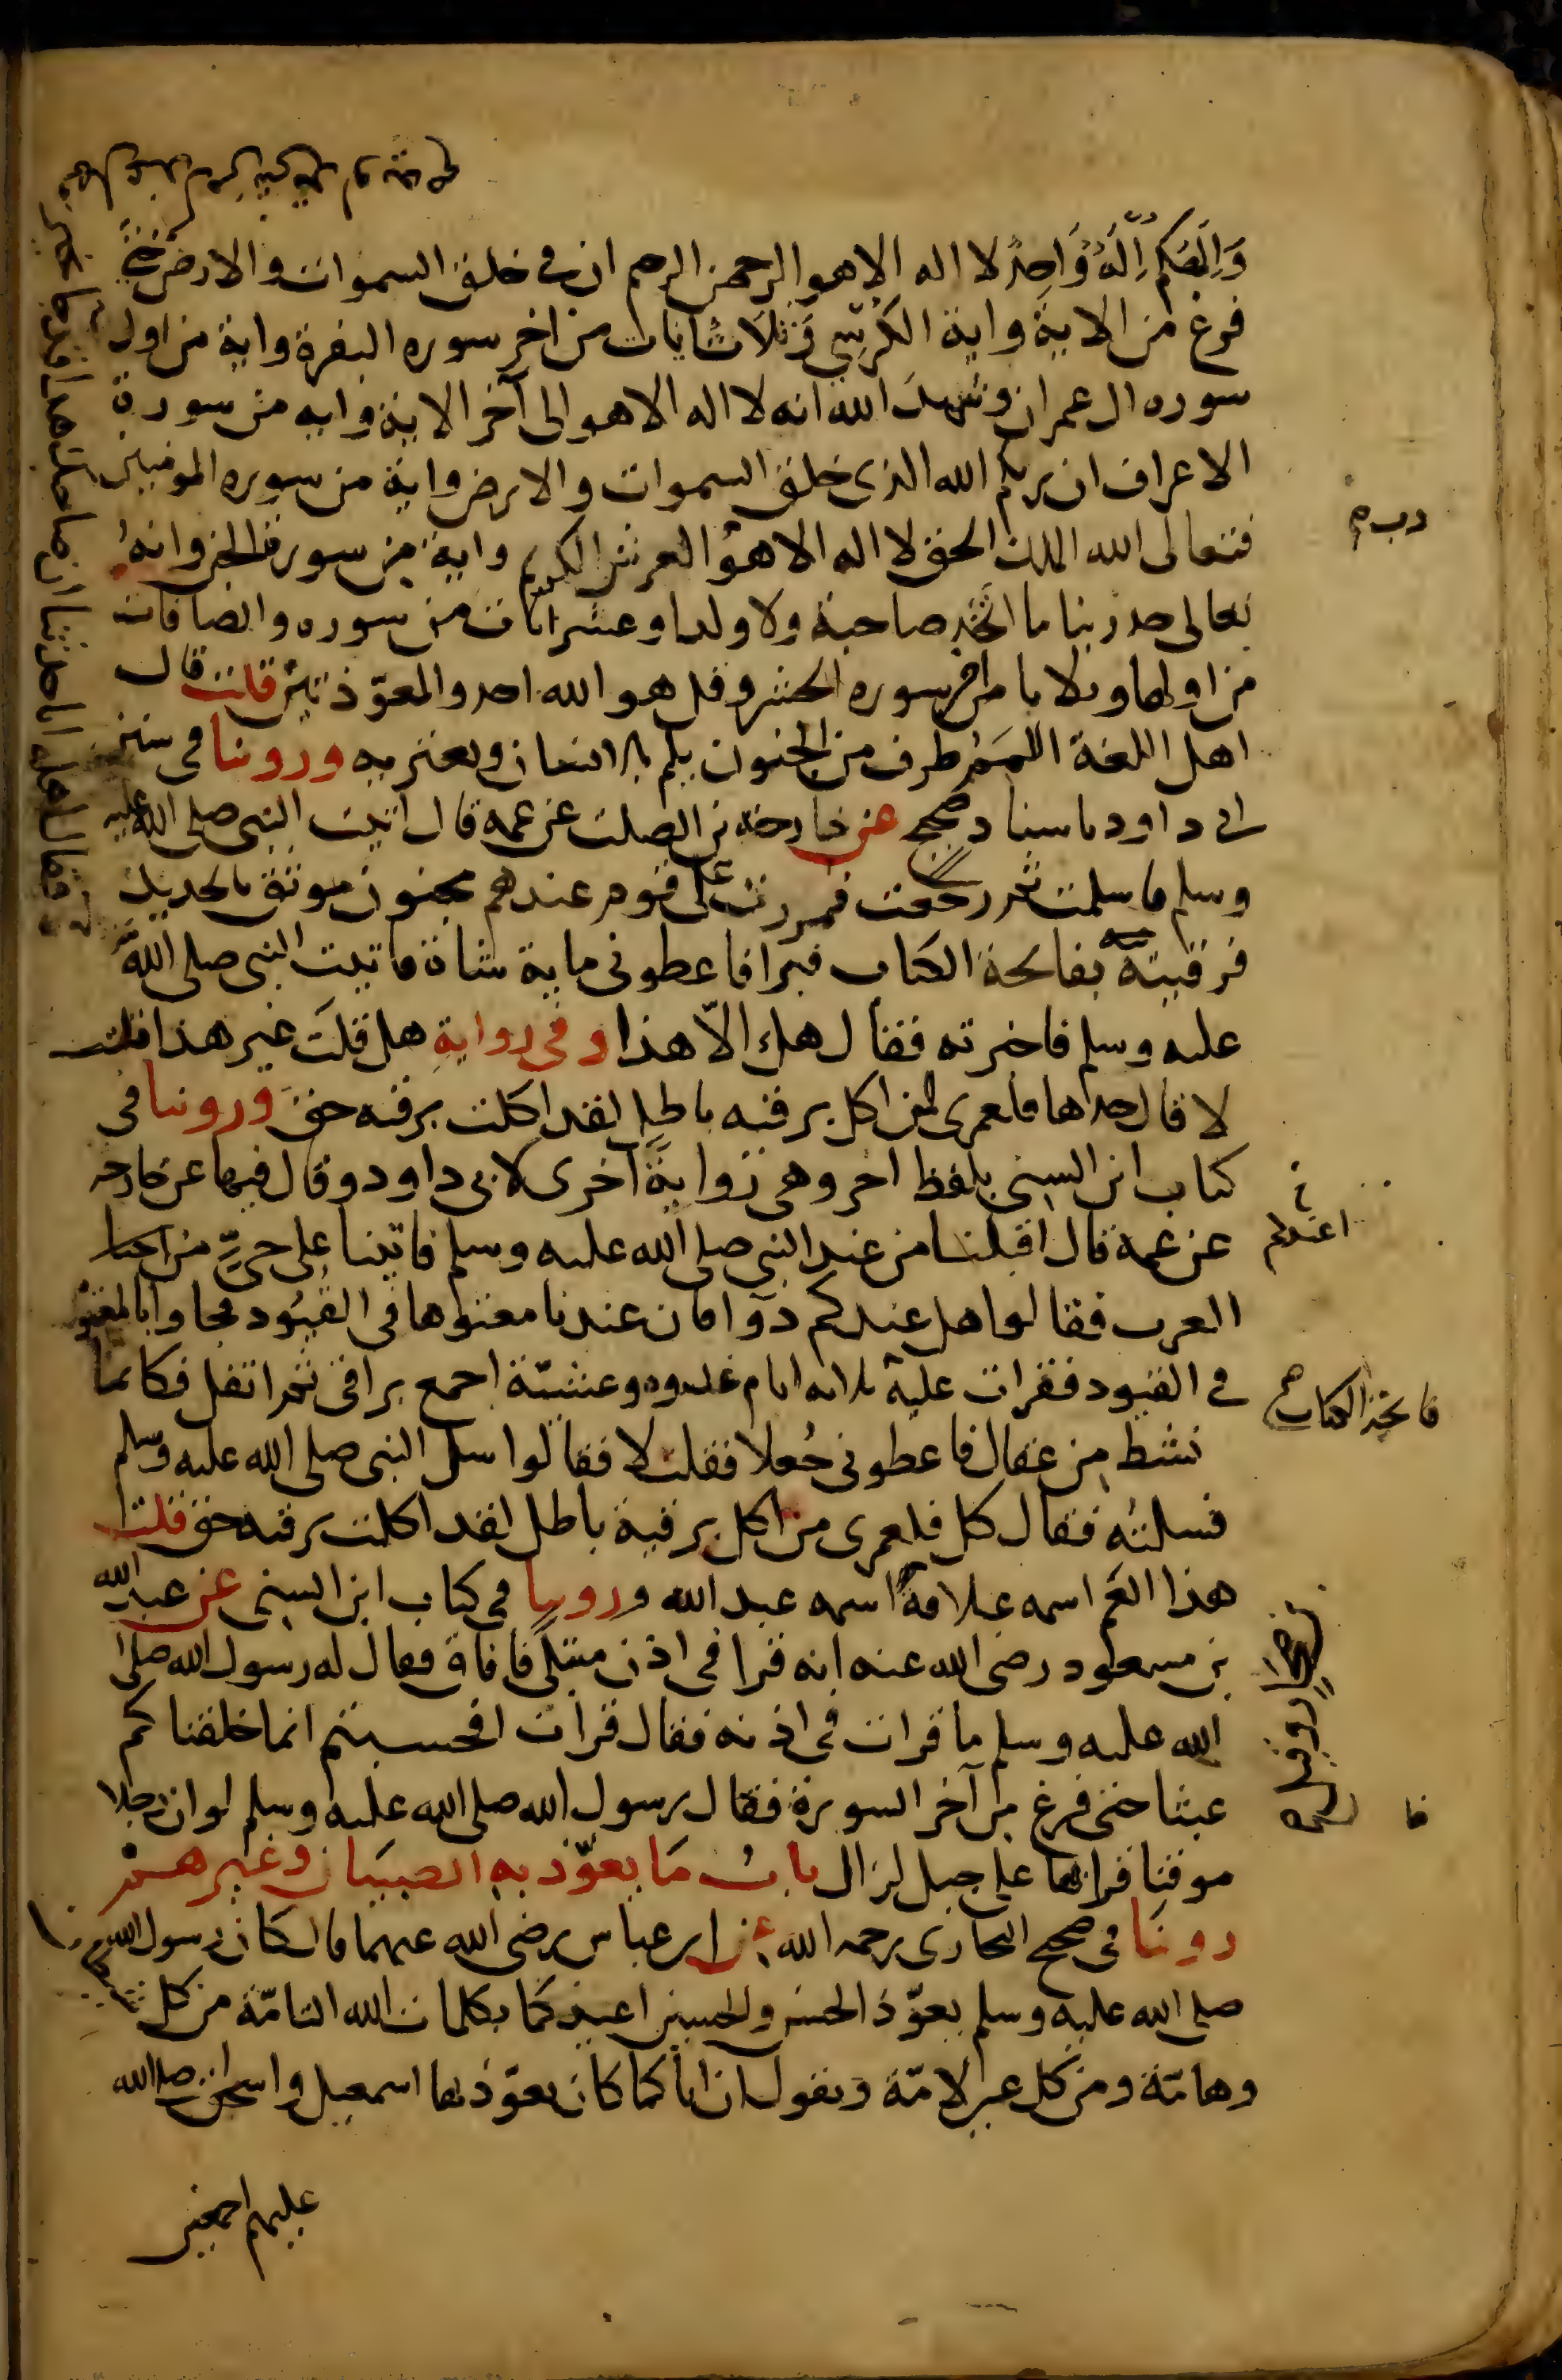 وَإِلَهُكُمْ إِلَهٌ وَاحِدٌ لا اله الا هو الرحمن الرحيم ان في خلق السموات والارض حتى
فرغ من الاية واية الكرسي وَثلاث ايات من اخر سوره البقرة واية من اول
سوره ال عمران وشهد الله انه لا اله الا هو الى آخر الاية وايه من سورة
الاعراف ان ربكم الله الذى خلق السموات والارض واية من سوره المومنين
فتعالى الله الملك الحق لا اله الا هو العرش الكريم واية من سورة الجن وانهُ
تعالى جد ربنا ما اتخذ صاحبة ولا ولدا وعشر ايات من سوره والصافات
من اولها وثلاثا من اخر سوره الحشر وقل هو الله احد والمعوّذتين قلت قال
اهل اللغة اللمَمُ طرف من الجنون يلم بالانسان ويعتريه وروينا في سنن
ابى داود باسناد صحيح عن خارجة بن الصلت عن عمه قال اتيت النبي صلى الله عليه
وسلم فاسلمت ثم رجعت فمررت على قوم عندهم مجنون موثق بالحديد
فرقيته بفاتحة الكتاب فبرا فاعطوني ماية شاة فاتيت النبي صلى الله
عليه وسلم فاخبرته فقال هل الاّ هذا وفي رواية هل قلتَ غير هذا قلت
لا قال خذها فلعمرى لمن اكل برقيه باطل لقد اكلت برقيه حق وروينا في
كتاب ابن السنى بلفظ اخر وهي رواية آخرى لابي داود وقال فيها عن خارجه
عن عمه قال اقبلنا من عند النبي صلى الله عليه وسلم فاتينا على حيٍّ من احيا
العرب فقالوا هل عندكم دوآ فان عندنا معتوها في القيُود فجاوا بالمعتوه
في القيود فقرات عليه ثلاثة ايام غدوه وعشيّة اجمع بزاقي ثم اتفل فكانما
نشط من عقال فاعطوني جُعلا فقلت لا فقالوا سل النبي صلى الله عليه وسلم
فسلتُه فقال كل فلعمرى من اكل برقية باطل لقد اكلت برقيه حق قلت
هذا العَم اسمه علاقة اسمه عبد الله وروينا في كتاب ابن السنى عن عبد الله
بن مسعود رضي الله عنه انه قرا في اذن مبتلى فافاق فقال له رسول الله صلى
الله عليه وسلم ما قرات في اذنه فقال قرات افحسبتم انما خلقناكم
عبثا حتى فرغ من آخر السورة فقال رسول الله صلى الله عليه وسلم لو ان رجلا
موقنا قرا بها على جبل لزال بابُ مَا يعوّذ به الصبيَان وغيرهم
روينَا في صحيح البخارى رحمه الله عن ابن عباس رضي الله عنهما قال كان رسول الله
صلى الله عليه وسلم يعوّذ الحسن والحسين اعيذكما بكلمات الله التامّة من كل شيطان
وهامّة ومن كل عين لامّة ويقول ان اباكما كان يعوّذ بها اسمعيل واسحاق صلى الله
عليهم اجمعين
اعندكم
فاتحة الكتاب